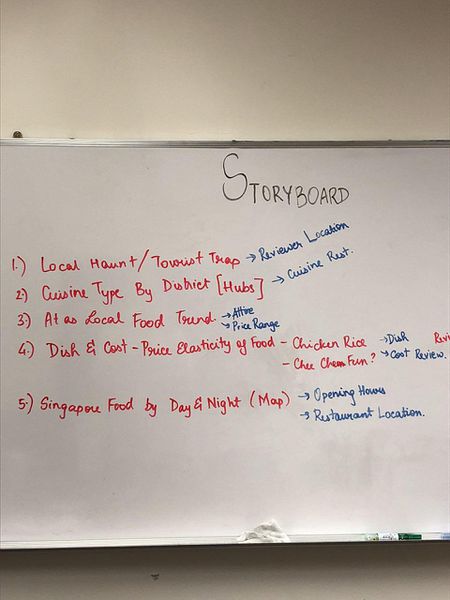 STORYBOARD
1.) Local Haunt/Tourist Trap → Reviewer Location
2.) Cuisine Type By District [Hubs] → Cuisine Rest.
3.) At as Local Food Trend. → Attire
→ Price Range
4.) Dish & Cost - Price Elasticity of Food - Chicken Rice → Dish Revi
- Chee Chem Fun? → Cost Review.
5.) Singapore Food by Day & Night (Map) → Opening Hours
→ Restaurant Location.